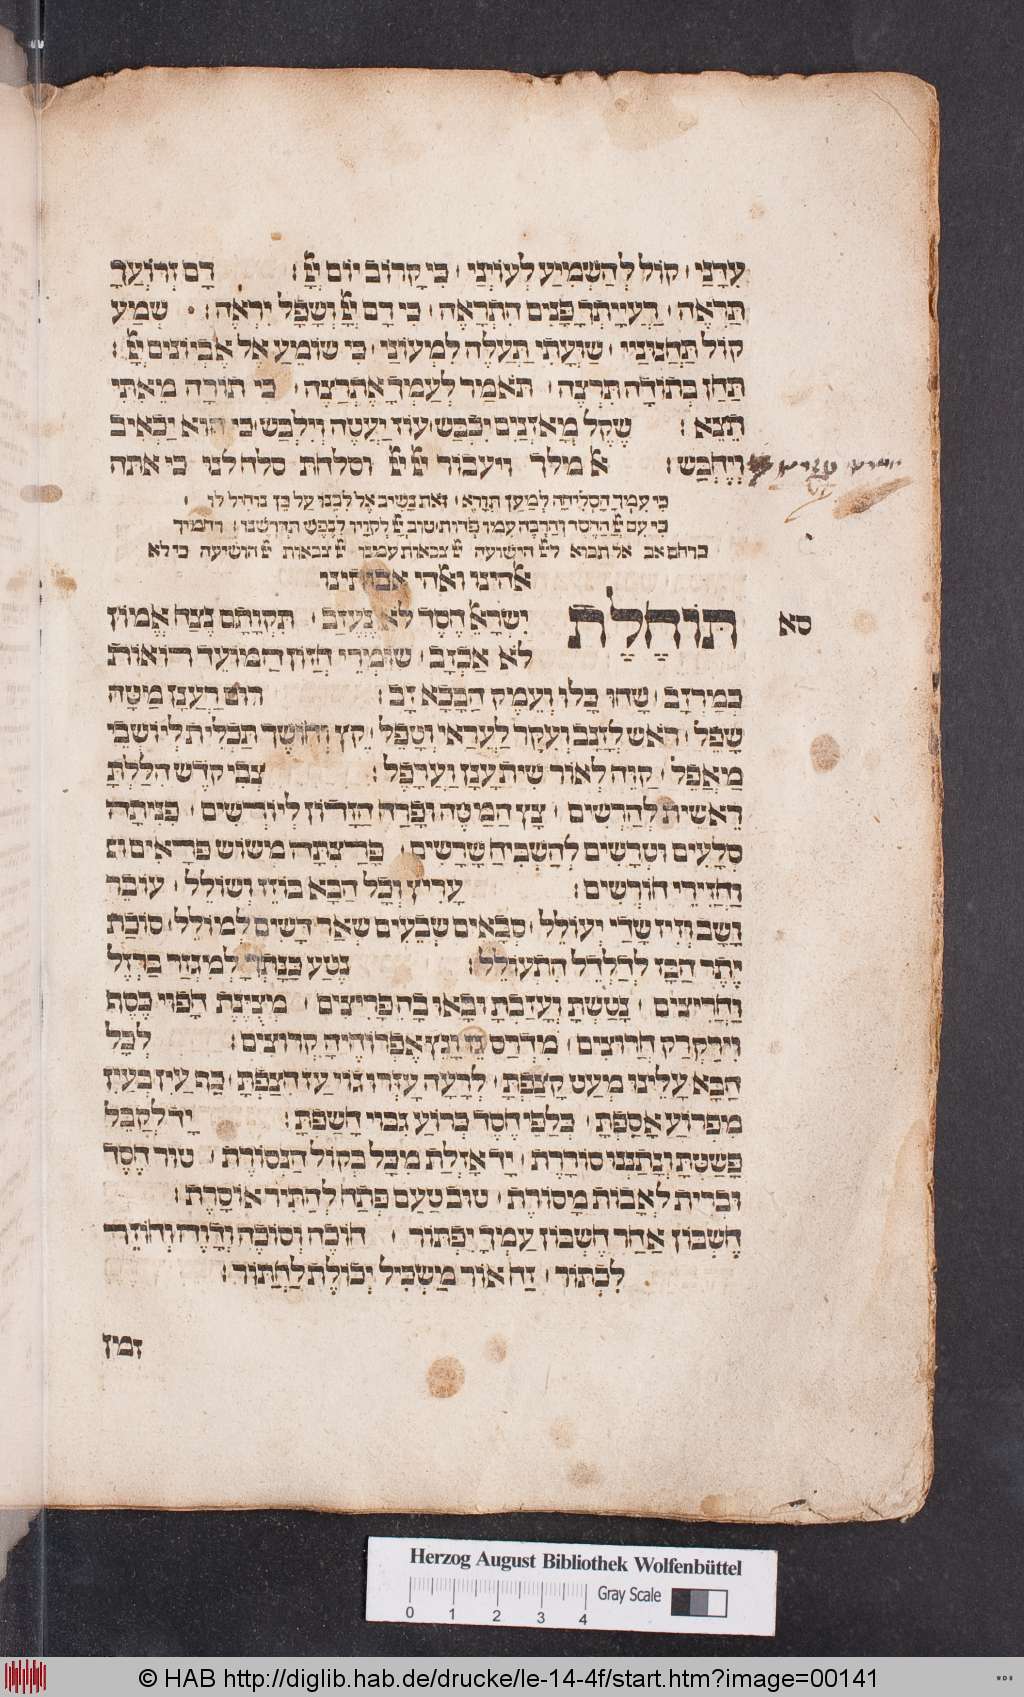 עדני קול להשמיע לעותני כי קרוב יום יי : רם זרועך
תראה
קול תחנוני שועתי תעלה למעוני כי שומע אל אביונים יי :
תחן בתורה תרצה תאמר לעמך אתרצה כי תורה מאתי
תצא : שקל מאזנים יכבש עוז יעטה וילבש כי הוא יכאיב
ויחבש : אל מלך ויעבור יי יי וסלחת סלח לנו כי אתה
כי עמך הסליחה למען תורא זאת נשיב אל לבנו על כן נוחיל לו
כי עם יי החסד והרבה עמו פדות טוב יי לקויו לנפש תדרשנו : רחמיך
כרחם אב אל תבוא ליי הישועה יי צבאות עמנו יי צבאות יי הושיעה כי לא
אלהינו ואלהי אבותינו
סא
תוחלת
ישראל חסד לא נעזב תקותם נצח אמון
לא אכזב שומרי חזון המועד
במרזב שחו כלו ועמק הבכא זב : רום רענן מטה
שפל ראש לזנב ועקר לעראי וטפל קץ וחושך תכלית ליושבי
מאפל קוה לאור שית ענן וערפל : צבי קדש חללת
ראשית לחרשים ציץ המטה ופרח הזדון ליורשים פניתה
סלעים וטרשים להשביח שרשים פרצתה משוש פראים
וחזירי חורשים : עריץ וכל הבא בוזז ושולל עובר
ושב וזיז שדי יעולל סבאים שבעים למולל סוכת
יתר הבז לחלחל התעולל : נטע למגזר ברזל
וחריצים נטשת ועזבת ובאו בה פריצים הפוי כסף
וירקרק חרוצים מדרס : לכל
הבא עלינו מעט קצפת לרעה עזרו גוי עז הצפת כף עיז בעיז
מפרוע אספת כלפי חסד ברוע גבוי חשפת : יד לקבל
פשטת ונתנו סוררת יד אזלת מכל בקול הנסורת טור חסד
וברית לאבות מסורת טוב טעם פתח להתיר אוסרת :
חשבון אחר חשבון עמך יפתור חוכה וסוכה
לכתור זה אור משכיל יכולת לחתור :
זמן
Herzog August Bibliothek Wolfenbüttel
Gray Scale
0 1 2 3 4
© HAB http://diglib.hab.de/drucke/le-14-4f/start.htm?image=00141